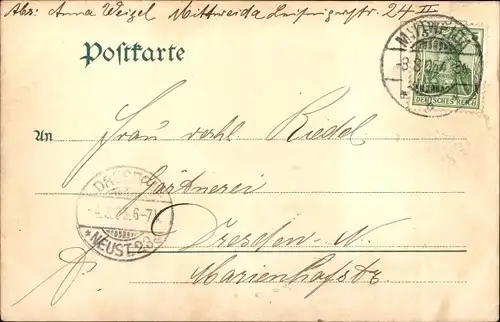 Abs: Anna Weigel Mittweida Leipzigerstr. 24 II
Postkarte
MITTWEIDA
-8.8.05
DEUTSCHES REICH
An
Frau verh. Riedel
Gärtnerei
DRESDEN
6-7
*NEUST. 23
Dresden-N.
Marienhofstr.